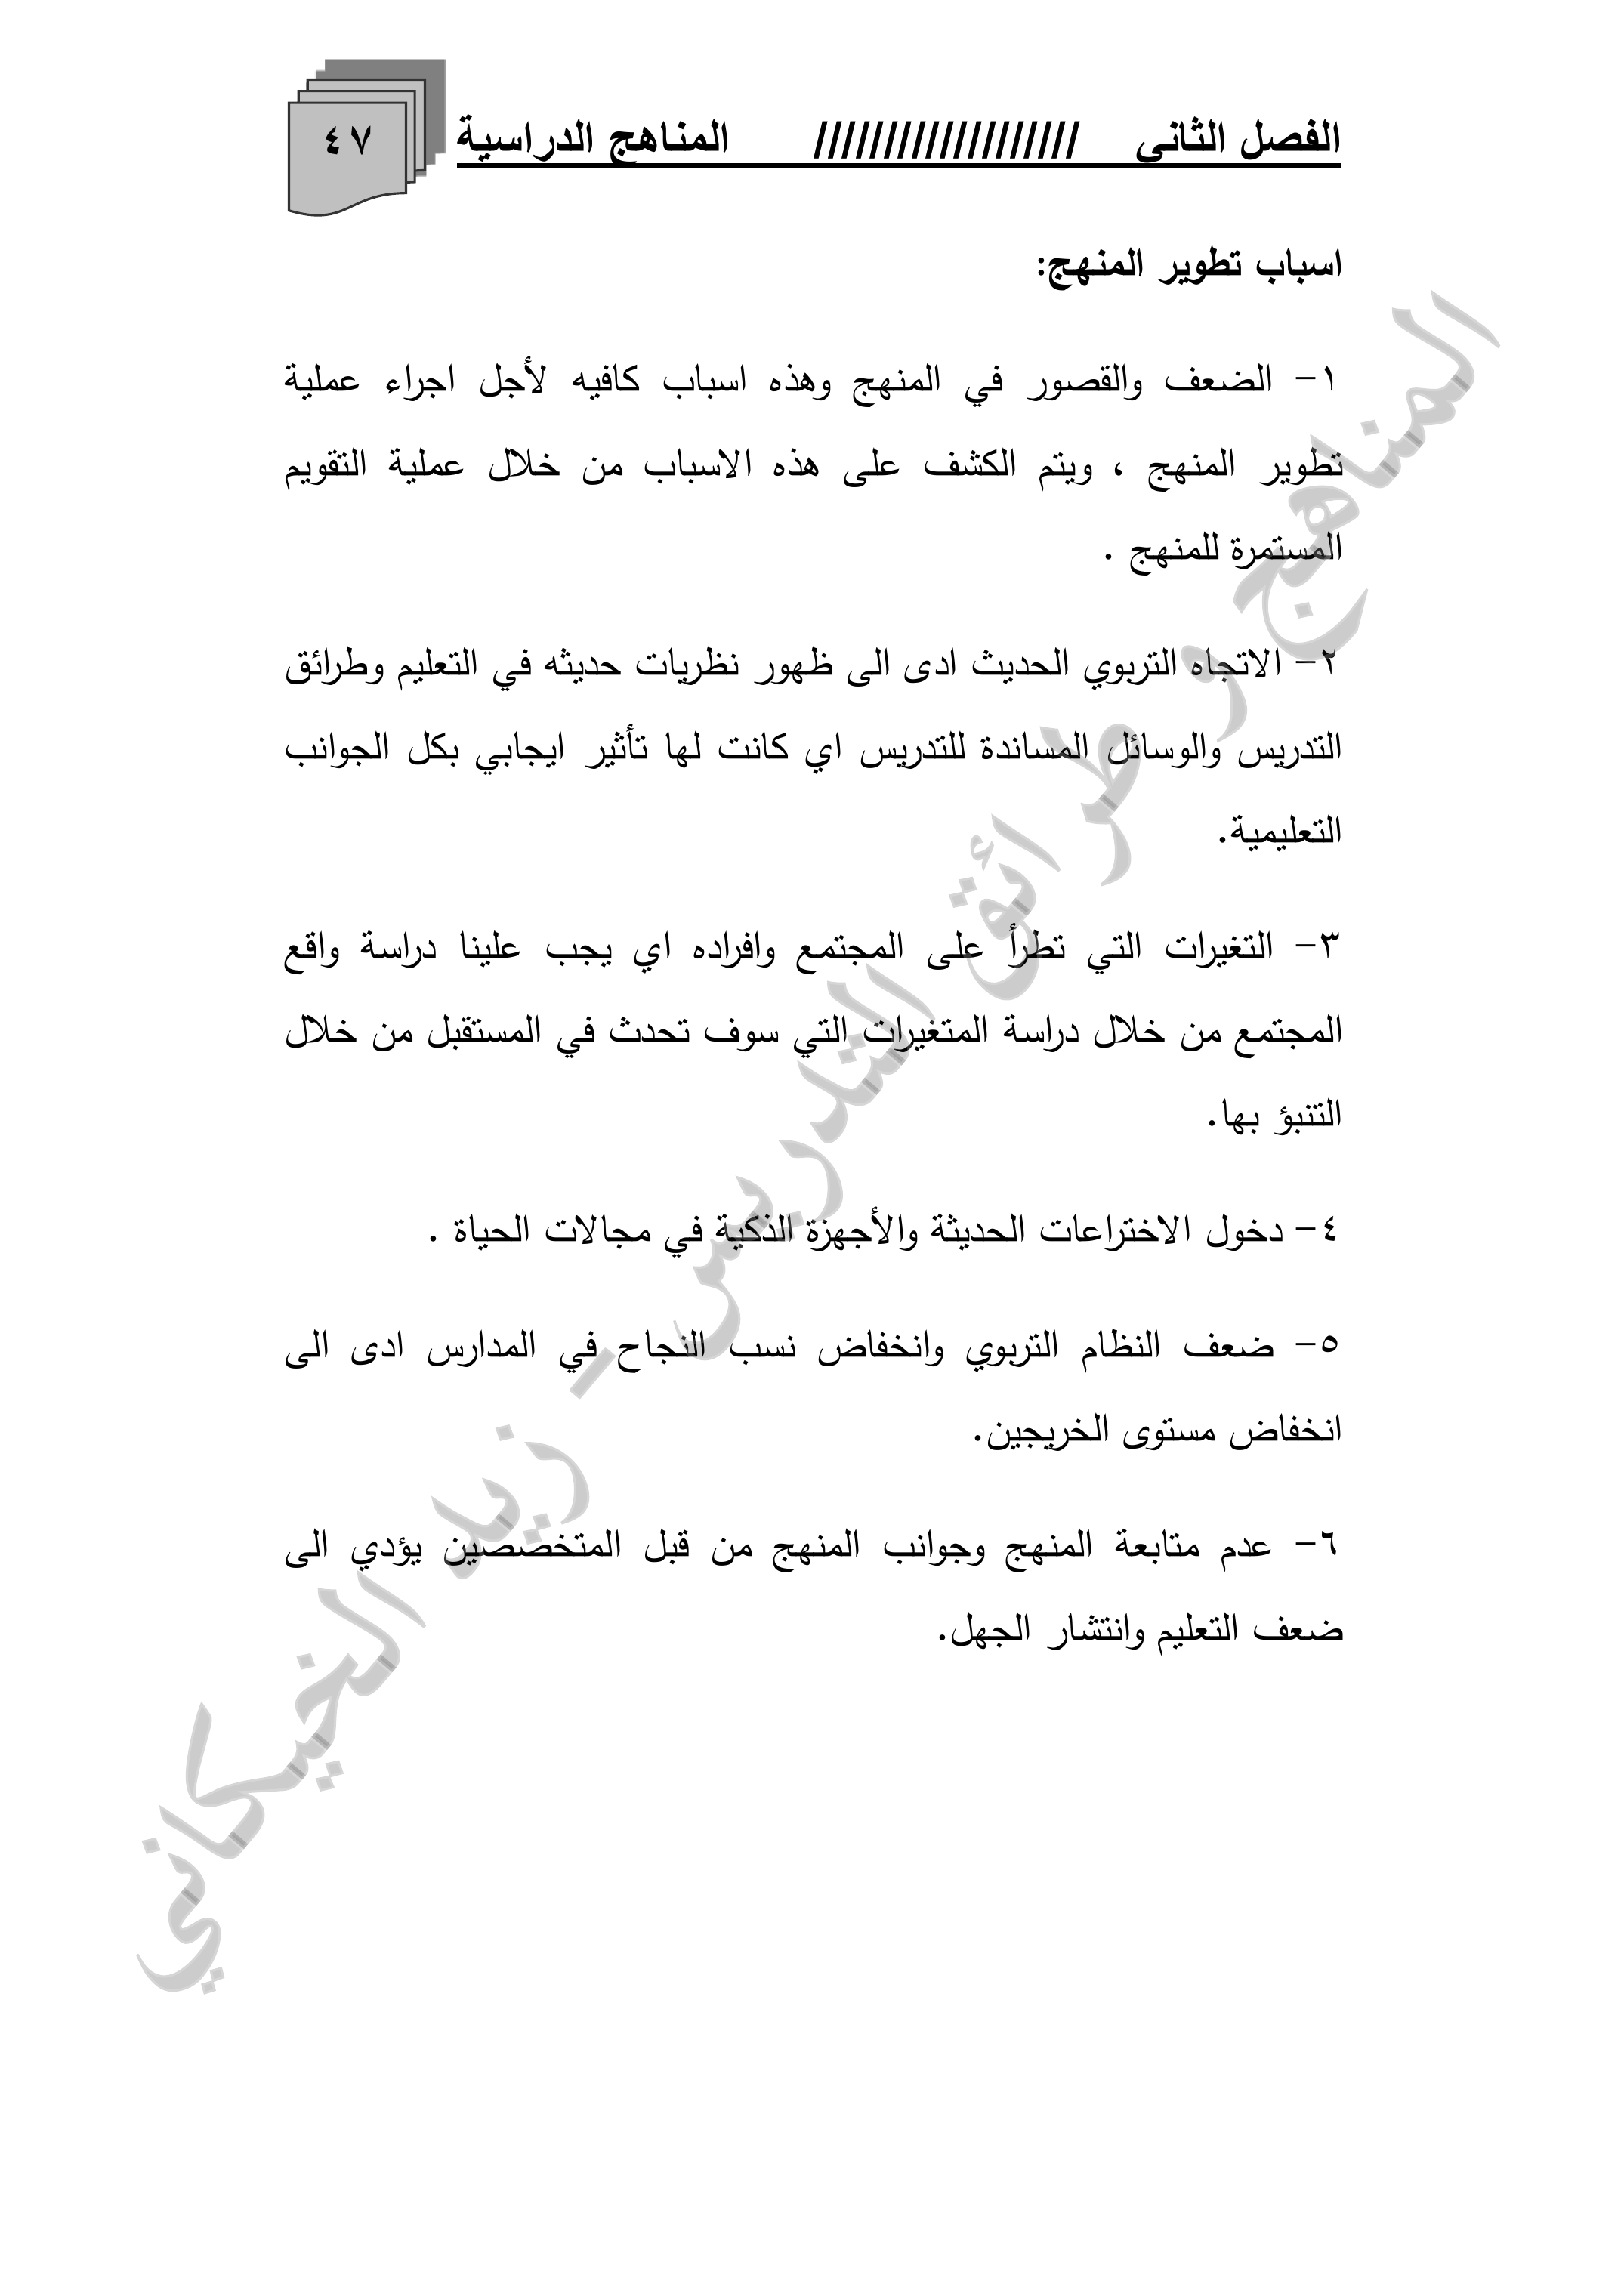 الفصل الثاني /////////////////// المناهج الدراسية ٤٧
اسباب تطوير المنهج:
١- الضعف والقصور في المنهج وهذه اسباب كافيه لأجل اجراء عملية
تطوير المنهج ، ويتم الكشف على هذه الاسباب من خلال عملية التقويم
المستمرة للمنهج .
٢- الاتجاه التربوي الحديث ادى الى ظهور نظريات حديثه في التعليم وطرائق
التدريس والوسائل المساندة للتدريس اي كانت لها تأثير ايجابي بكل الجوانب
التعليمية.
٣- التغيرات التي تطرأ على المجتمع وافراده اي يجب علينا دراسة واقع
المجتمع من خلال دراسة المتغيرات التي سوف تحدث في المستقبل من خلال
التنبؤ بها.
٤- دخول الاختراعات الحديثة والأجهزة الذكية في مجالات الحياة .
٥- ضعف النظام التربوي وانخفاض نسب النجاح في المدارس ادى الى
انخفاض مستوى الخريجين.
٦- عدم متابعة المنهج وجوانب المنهج من قبل المتخصصين يؤدي الى
ضعف التعليم وانتشار الجهل.
المناهج و طرائق التدريس - زيد الخيكاني